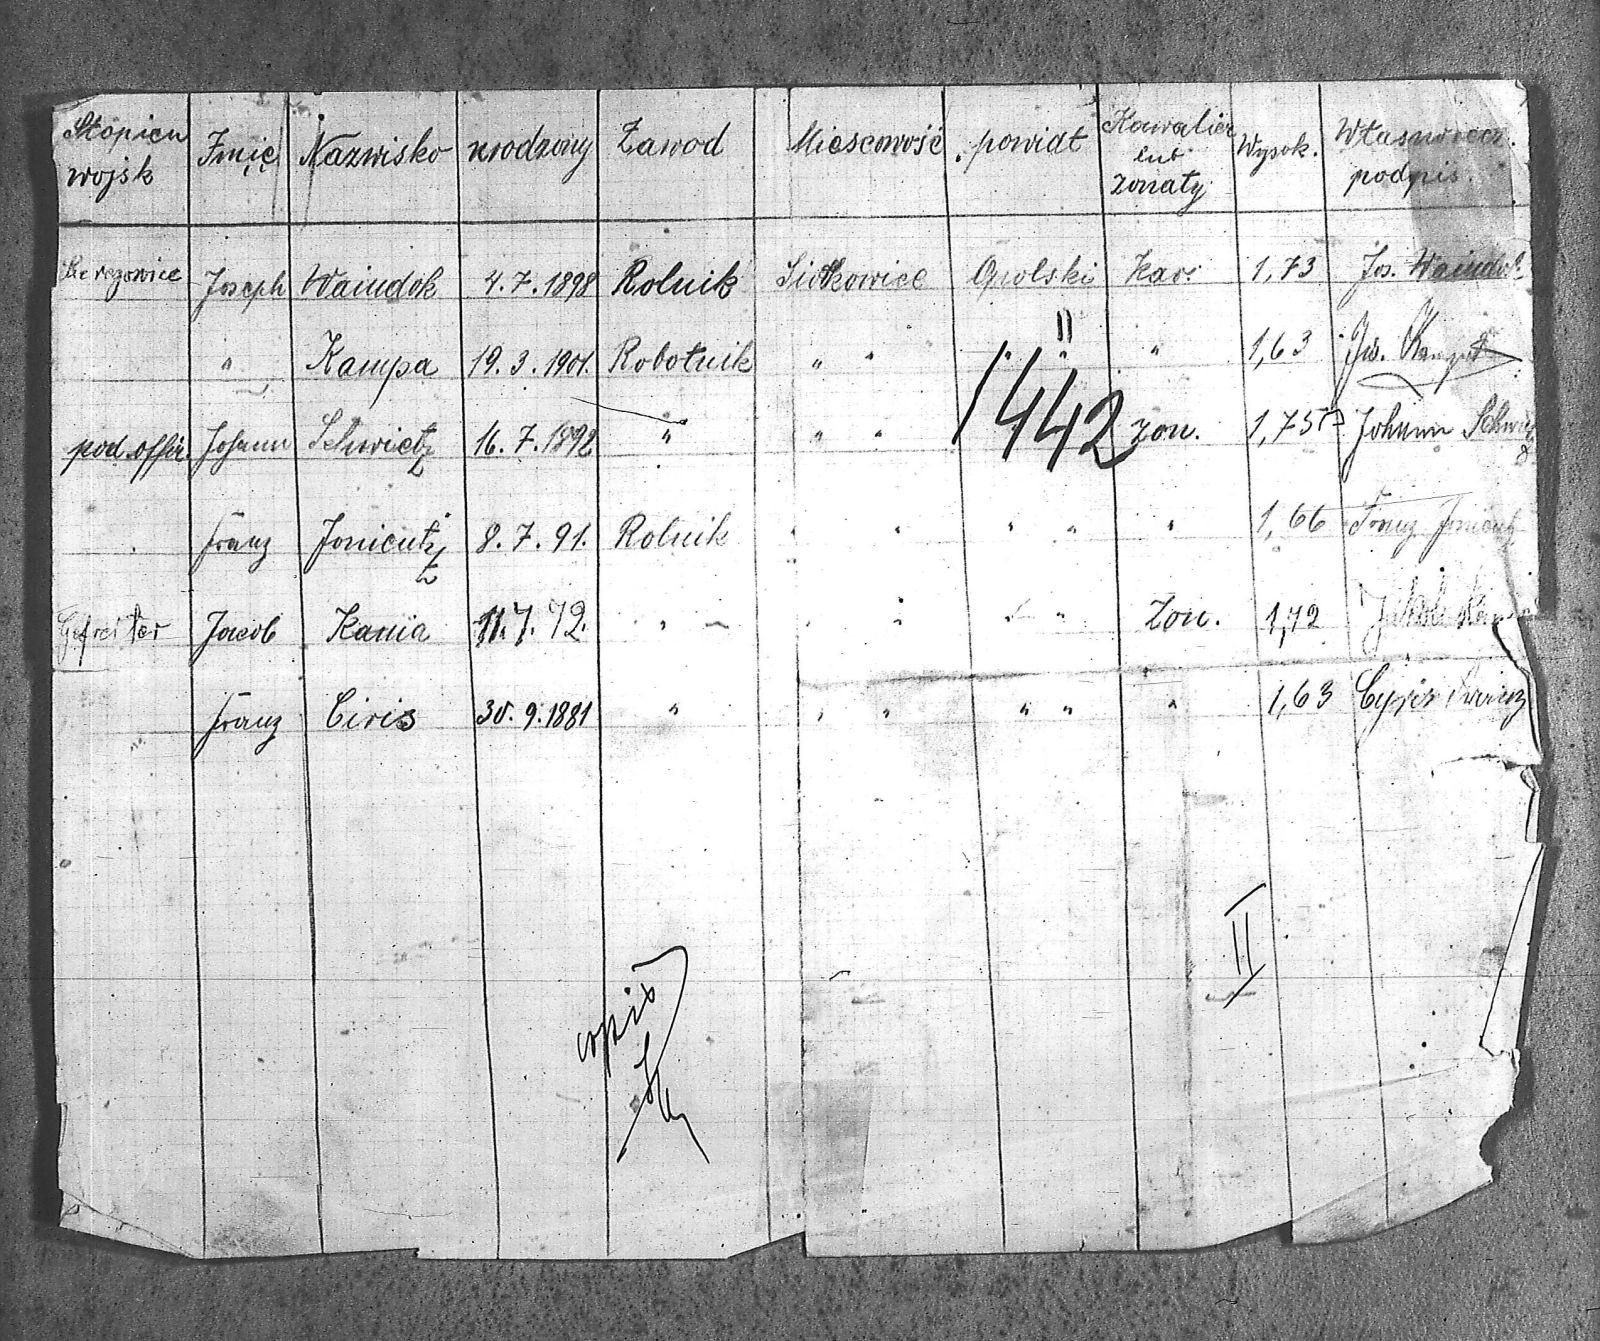 Stopien wojsk Imię Nazwisko urodzony Zawod Miescowość powiat Kawalier lub zonaty Wysok. Własnoręcz. podpis.
Szeregowiec Joseph Waindok 4.7.1898 Rolnik Siołkowice Opolski Kav. 1,73 Jos. Waindok
" Kampa 19.3.1901. Robotnik " " " " " 1,63 Jos. Kampa
pod.offir. Johann Schwietz 16.7.1892 " " " 1442 zon. 1,75 Johann Schwietz
Franz Jonientz 8.7.91. Rolnik " " " " " 1,66 Franz Jonientz
Gefreiter Jacob Kania 11.7.72. " " " " " Zon. 1,72 Jakob Kania
" Franz Ciris 30.9.1881 " " " " " " 1,63 Cyris Franz
II